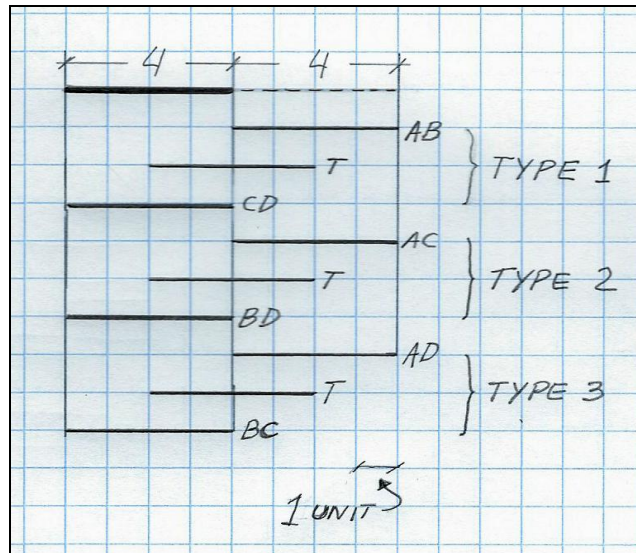 4 4
AB
T TYPE 1
CD
AC
T TYPE 2
BD
AD
T TYPE 3
BC
1 UNIT